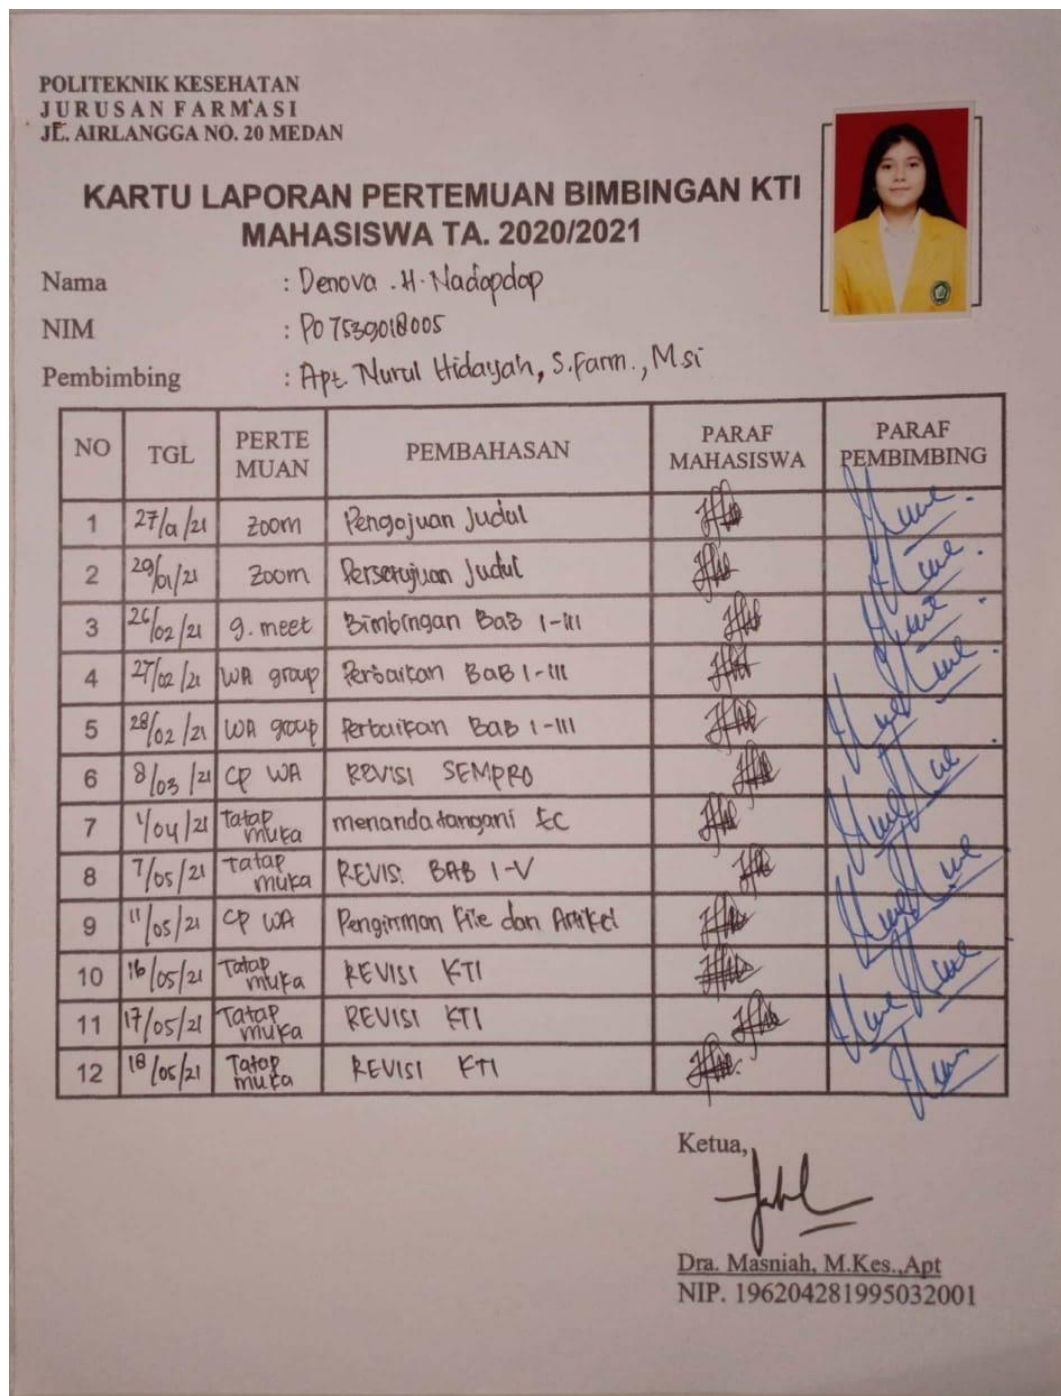 POLITEKNIK KESEHATAN
JURUSAN FARMASI
JL. AIRLANGGA NO. 20 MEDAN
KARTU LAPORAN PERTEMUAN BIMBINGAN KTI
MAHASISWA TA. 2020/2021
Nama : Denova .H. Nadapdap
NIM : P07539018005
Pembimbing : Apt. Nurul Hidayah, S.Farm., M.si
NO TGL PERTE MUAN PEMBAHASAN PARAF MAHASISWA PARAF PEMBIMBING
1 Zoom Pengajuan Judul
2 29/01/21 Zoom Persetujuan Judul
3 26/02/21 g. meet Bimbingan BaB I-III
4 27/02/21 WA group Perbaikan BaB I-III
5 28/02/21 WA group Perbaikan BaB I-III
6 8/03/21 CP WA REVISI SEMPRO
7 1/04/21 Tatap muka menandatangani EC
8 7/05/21 Tatap muka REVISI BAB I-V
9 11/05/21 CP WA Pengiriman File dan Artikel
10 16/05/21 Tatap muka REVISI KTI
11 17/05/21 Tatap muka REVISI KTI
12 18/05/21 Tatap muka REVISI KTI
Ketua,
Dra. Masniah, M.Kes.,Apt
NIP. 196204281995032001